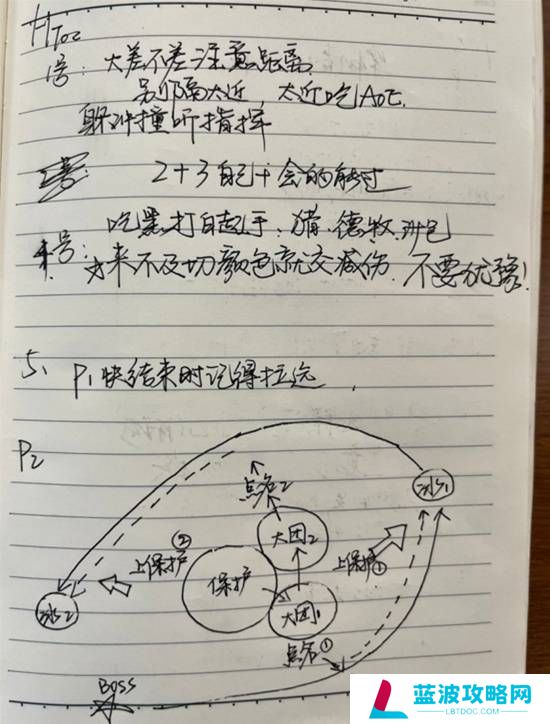 HToc
1号: 大差不差 注意距离
别隔太近, 太近吃AOE.
躲冲撞 听指挥
2+3 自己+会的能过
吃黑打白起手. 猎、德、牧
4号: 来不及切颜色就交减伤. 不要犹豫!
5、 P1快结束时记得拉远.
P2
点名2
冰1
大团2
上保护②
上保护①
保护
大团1
冰2
点名①
BOSS
蓝波攻略网
LBTDOC.COM